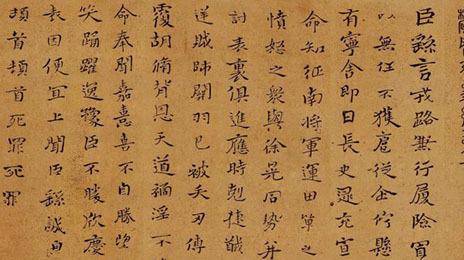 臣繇言戎路兼行履險冒
以無任不獲扈從企佇懸
有寧舍即日長史逯充宣
命知征南將軍運田單之
憤怒之眾與徐晃同勢并
討表裏俱進應時剋捷馘
逆賊帥關羽已被矢刃傅
覆胡脩背恩天道禍淫不
命奉聞嘉憙喜不自勝望
笑踊躍逸豫臣不勝欣慶
表因便宜上聞臣繇誠皇
頓首頓首死罪死罪